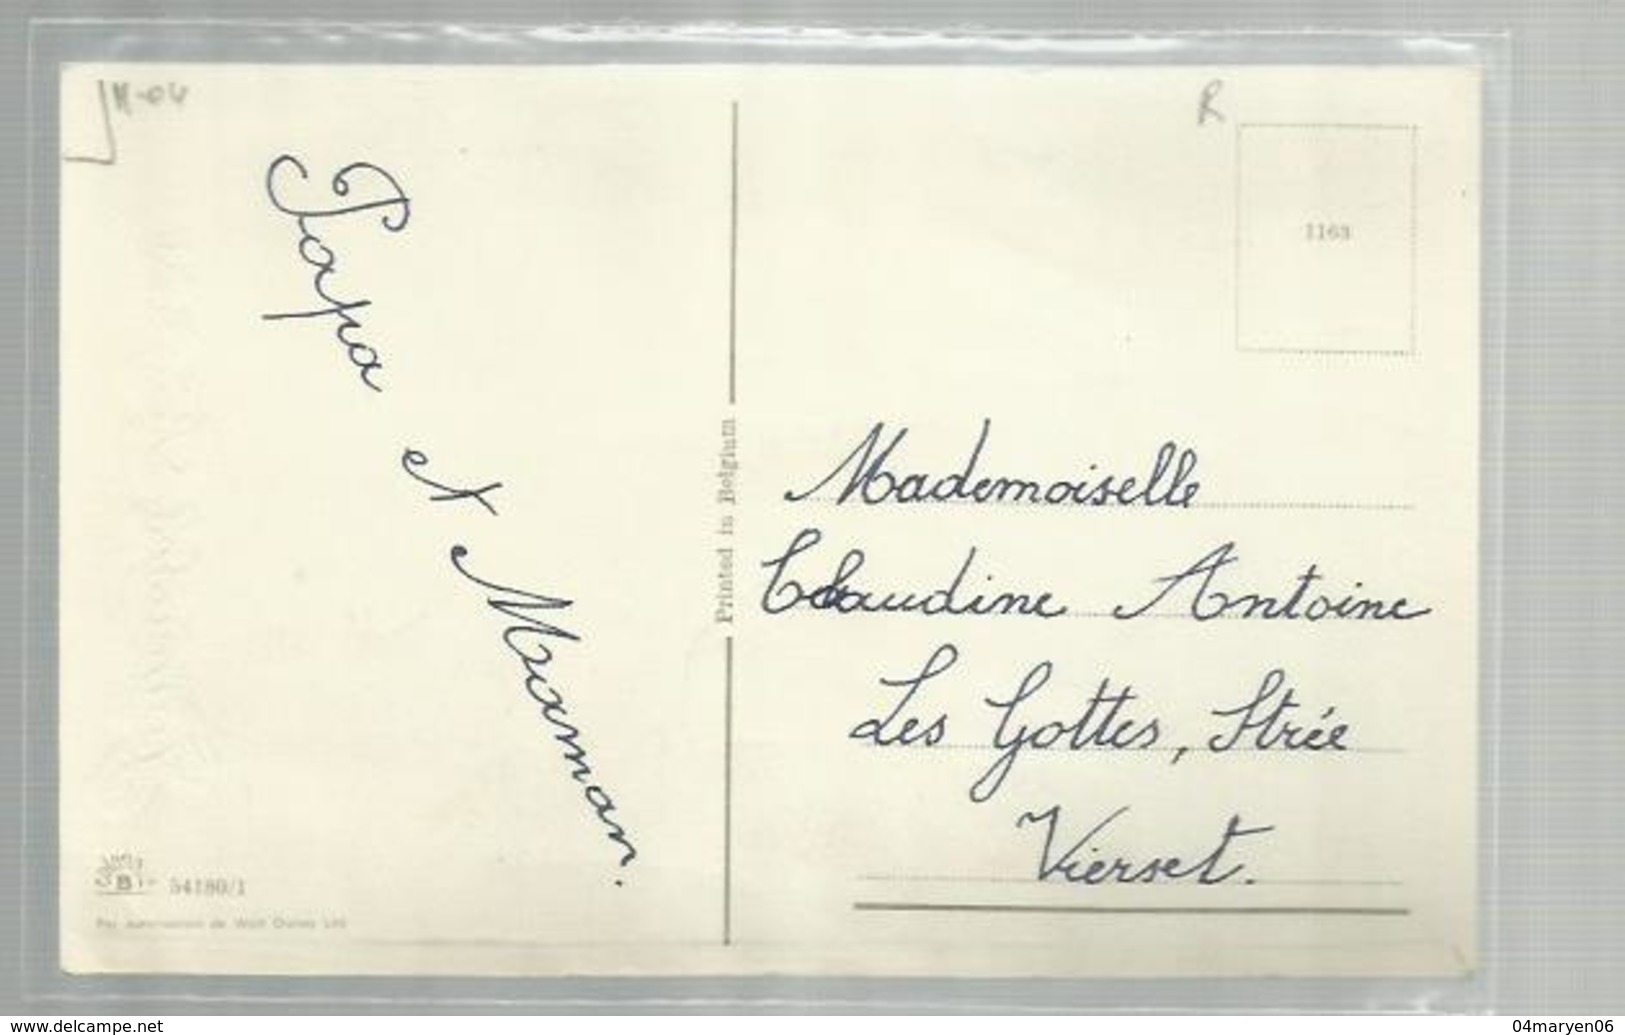 M-04
R
1163
Papa et Maman.
Printed in Belgium
Mademoiselle
Claudine Antoine
Les Gottes, Strée
Vierset.
B
54180/1
Par autorisation de Walt Disney
www.delcampe.net
04maryen06